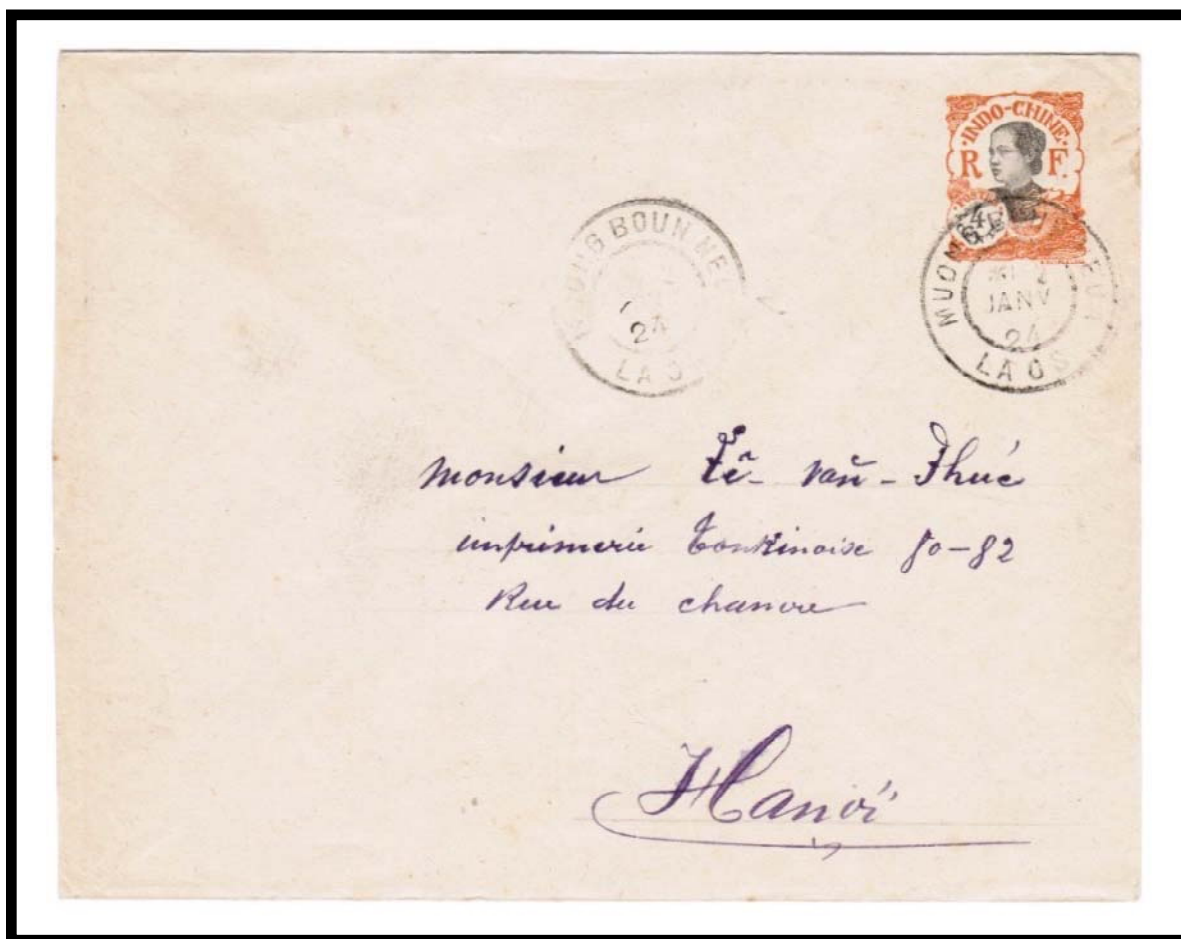 INDO-CHINE
R F.
POSTES
4
MUONG BOUN NEUA
2
JANV
24
LAOS
MUONG BOUN NEU
24
LAO
Monsieur Văn-Thuć
imprimerie Tonkinoise 80-82
Rue du chanvre
Hanoï